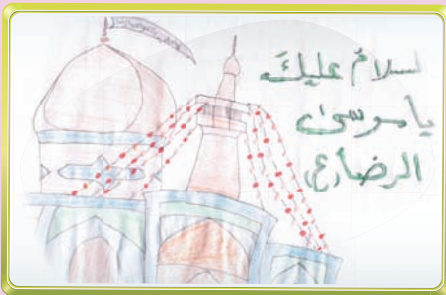 لسلامُ عليكَ
يا موسىٰ
الرضا(ع)